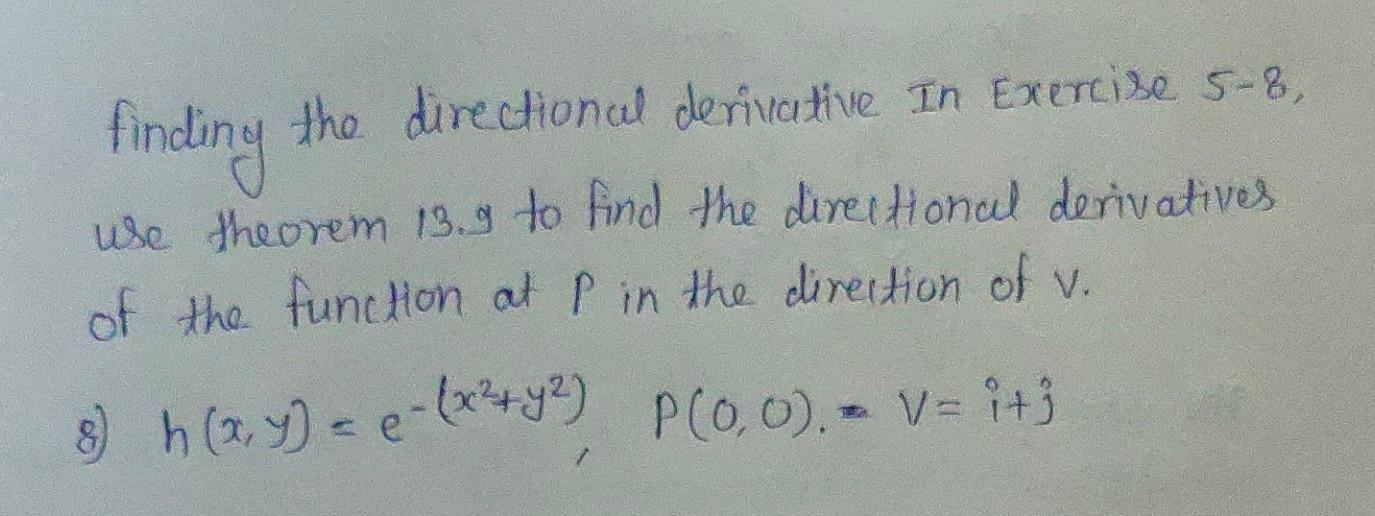 finding the directional derivative In Exercise 5-8,
use theorem 13.9 to find the directional derivatives
of the function at P in the direction of v.
8) h(x,y) = e^-(x²+y²), P(0,0). - V = i+j